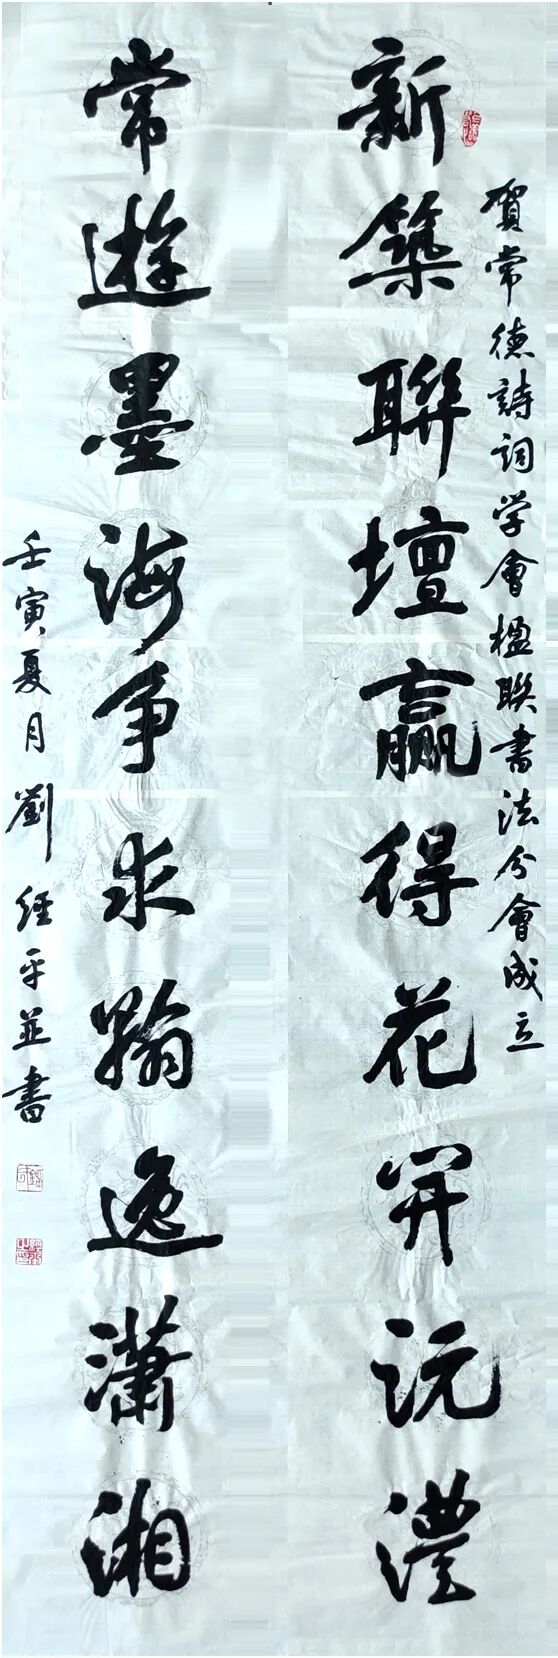 賀常德詩詞学會楹聯書法分會成立
新築聯壇贏得花開沅澧
常遊墨海争求翰逸瀟湘
壬寅夏月劉經平並書